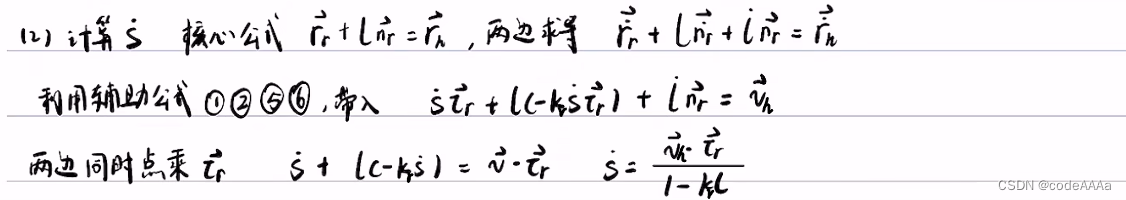 (2) 计算 ṡ 核心公式 r⃗ᵣ + l n⃗ᵣ = r⃗ₕ , 两边求导 r⃗̇ᵣ + l n⃗̇ᵣ + l̇ n⃗ᵣ = r⃗̇ₕ
利用辅助公式 ①②⑤⑥ , 带入 ṡ τ⃗ᵣ + l(-kᵣ ṡ τ⃗ᵣ) + l̇ n⃗ᵣ = v⃗ₕ
两边同时点乘 τ⃗ᵣ ṡ + l(-kᵣ ṡ) = v⃗ · τ⃗ᵣ ṡ = v⃗ₕ · τ⃗ᵣ / 1 - kᵣ l
CSDN @codeAAAa